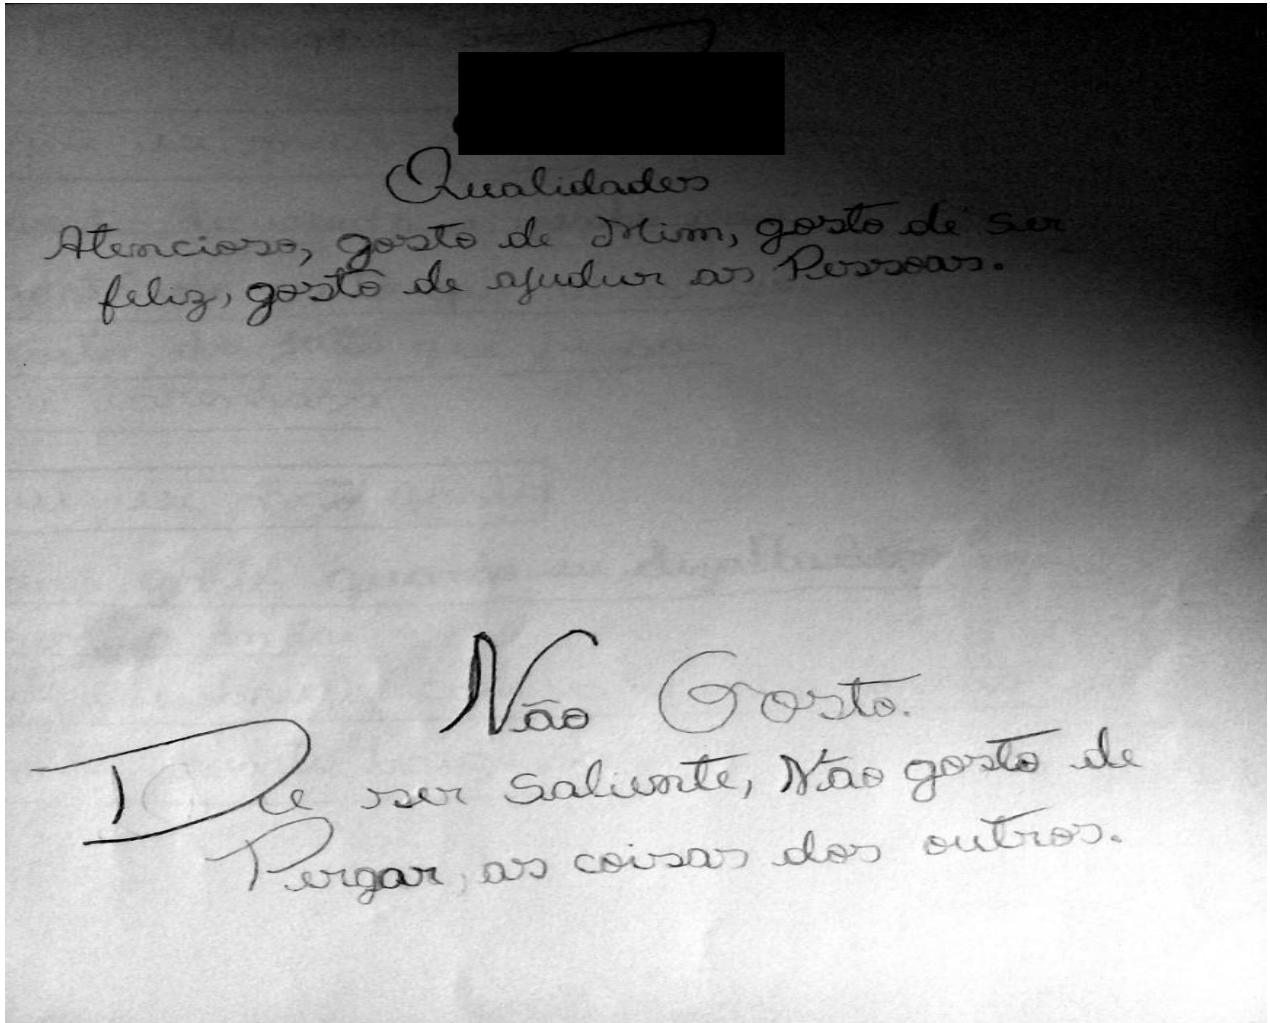 Qualidades
Atencioso, gosto de Mim, gosto de ser
feliz, gosto de ajudur as Pessoas.
Não Gosto.
De ser saliente, Não gosto de
Pergar, as coisas dos outros.